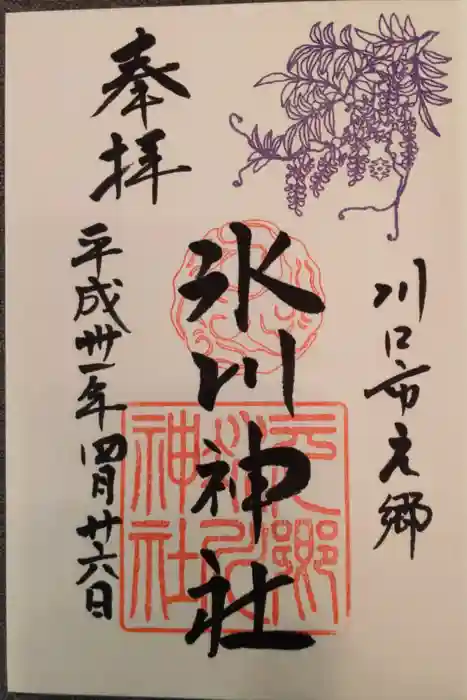 川口市元郷
氷川神社
奉拝
平成卅一年四月廿六日
元郷
氷川
神社